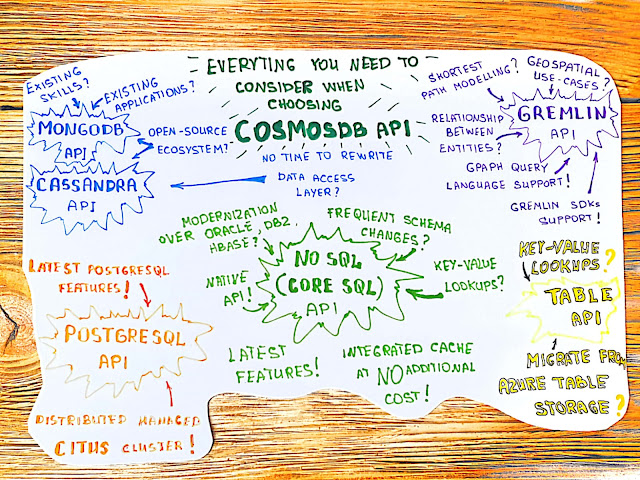 EVERYTING YOU NEED TO
CONSIDER WHEN
CHOOSING
COSMOSDB API
EXISTING
SKILLS?
EXISTING
APPLICATIONS?
MONGODB
API
OPEN-SOURCE
ECOSYSTEM?
CASSANDRA
API
NO TIME TO REWRITE
DATA ACCESS
LAYER?
SHORTEST
PATH MODELLING?
GEOSPATIAL
USE-CASES?
GREMLIN
API
RELATIONSHIP
BETWEEN
ENTITIES?
GPAPH QUERY
LANGUAGE SUPPORT!
GREMLIN SDKs
SUPPORT!
MODERNIZATION
OVER ORACLE, DB2,
HBASE?
FREQUENT SCHEMA
CHANGES?
NATIVE
API!
NO SQL
(CORE SQL)
API
KEY-VALUE
LOOKUPS?
LATEST
FEATURES!
INTEGRATED CACHE
AT NO ADDITIONAL
COST!
LATEST POSTGRESQL
FEATURES!
POSTGRESQL
API
DISTRIBUTED MANAGED
CITUS CLUSTER!
KEY-VALUE
LOOKUPS?
TABLE
API
MIGRATE FROM
AZURE TABLE
STORAGE?